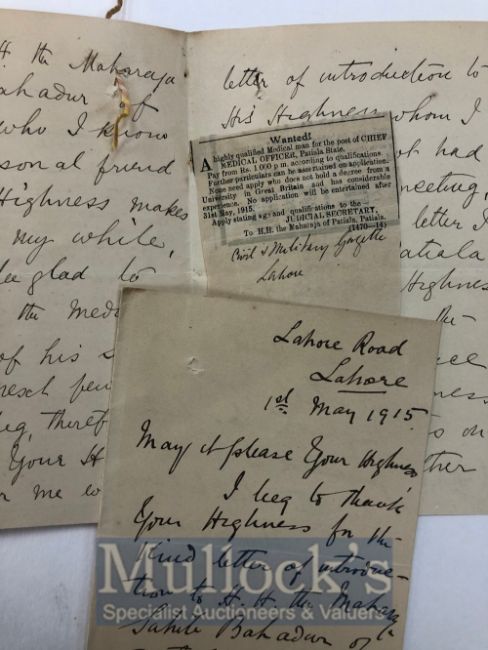 H. the Maharaja
ahadur of
who I know
sonal friend
Highness makes
my while,
be glad to
the Medi
of his s
beg, theref
Your H
r me to
letter of introduction to
His Highness whom I
ot had
meeting,
letter I
atiala
Highnes
the
ness
s on
ther
Wanted!
A highly qualified Medical man for the post of CHIEF
MEDICAL OFFICER, Patiala State.
Pay from Rs. 1,000 p.m. according to qualifications.
Further particulars can be ascertained on application.
None need apply who does not hold a degree from a
University in Great Britain and has considerable
experience. No application will be entertained after
31st May, 1915.
Apply stating age and qualifications to the—
JUDICIAL SECRETARY,
To H.H. the Maharaja of Patiala, Patiala.
(1470—14)
Civil & Military Gazette
Lahore
Lahore Road
Lahore
1st May 1915.
May it please Your Highness
I beg to thank
Your Highness for the
kind letter of introduc-
tion to H. H. the Maharaja
Sahib Bahadur of
Mullock's
Specialist Auctioneers & Valuers